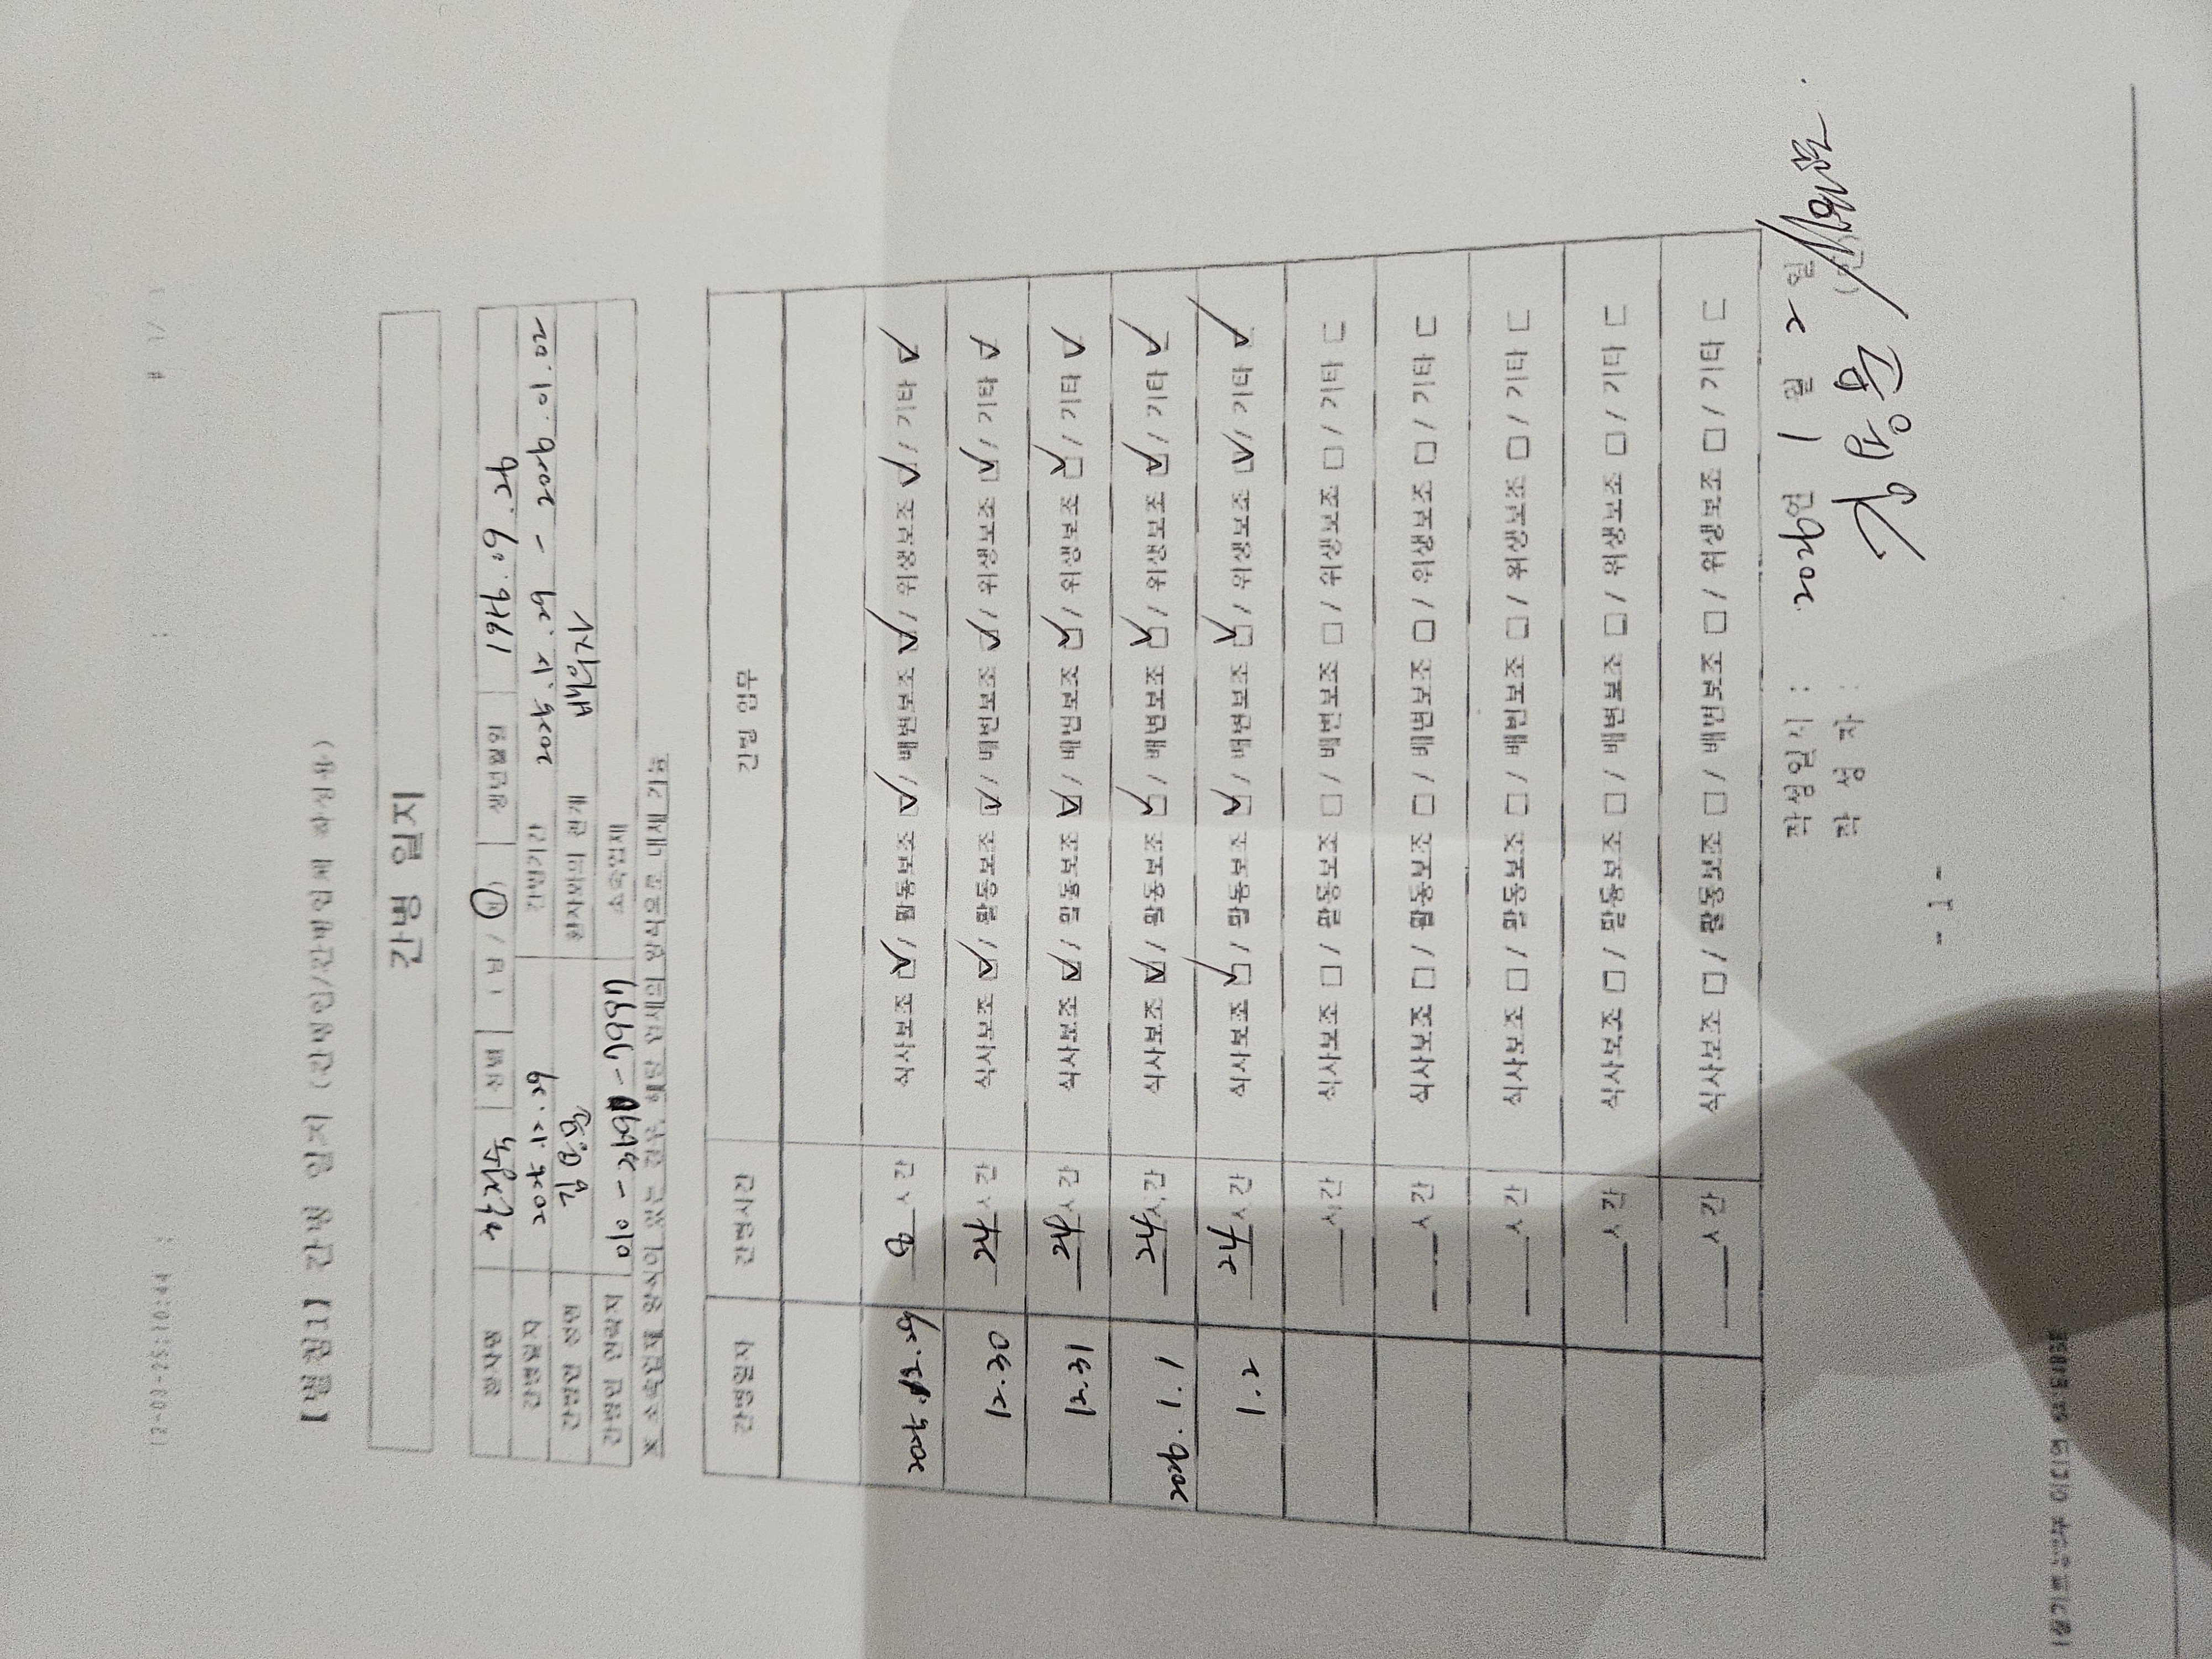 12-03-25;10:44 ; : # 1/ 1
[별첨1] 간병 일지 (간병인/간병업체 작성용)
간병 일지
환자명 성별 ( 남 / 여 ) 생년월일 1946. 6. 26
간병일자 2025. 12. 29 간병기간 2025. 12. 29 - 2026. 01. 02
간병인 성명 환자와의 관계 배우자
간병인 연락처 소속업체
※ 소속업체 양식이 있는 경우 해당 업체의 양식으로 대체 가능
간병일자 간병시간 간병 업무
2025. 12. 29 8 시간 식사보조 ☑ / 활동보조 ☑ / 배변보조 ☑ / 위생보조 ☑ / 기타 ☑
12. 30 24 시간 식사보조 ☑ / 활동보조 ☑ / 배변보조 ☑ / 위생보조 ☑ / 기타 ☑
12. 31 24 시간 식사보조 ☑ / 활동보조 ☑ / 배변보조 ☑ / 위생보조 ☑ / 기타 ☑
2026. 1. 1 24 시간 식사보조 ☑ / 활동보조 ☑ / 배변보조 ☑ / 위생보조 ☑ / 기타 ☑
1. 2 24 시간 식사보조 ☑ / 활동보조 ☑ / 배변보조 ☑ / 위생보조 ☑ / 기타 ☑
___시간 식사보조 □ / 활동보조 □ / 배변보조 □ / 위생보조 □ / 기타 □
___시간 식사보조 □ / 활동보조 □ / 배변보조 □ / 위생보조 □ / 기타 □
___시간 식사보조 □ / 활동보조 □ / 배변보조 □ / 위생보조 □ / 기타 □
___시간 식사보조 □ / 활동보조 □ / 배변보조 □ / 위생보조 □ / 기타 □
___시간 식사보조 □ / 활동보조 □ / 배변보조 □ / 위생보조 □ / 기타 □
작성일시 : 2026년 1 월 2 일
작 성 자 : (인)
- 1 -